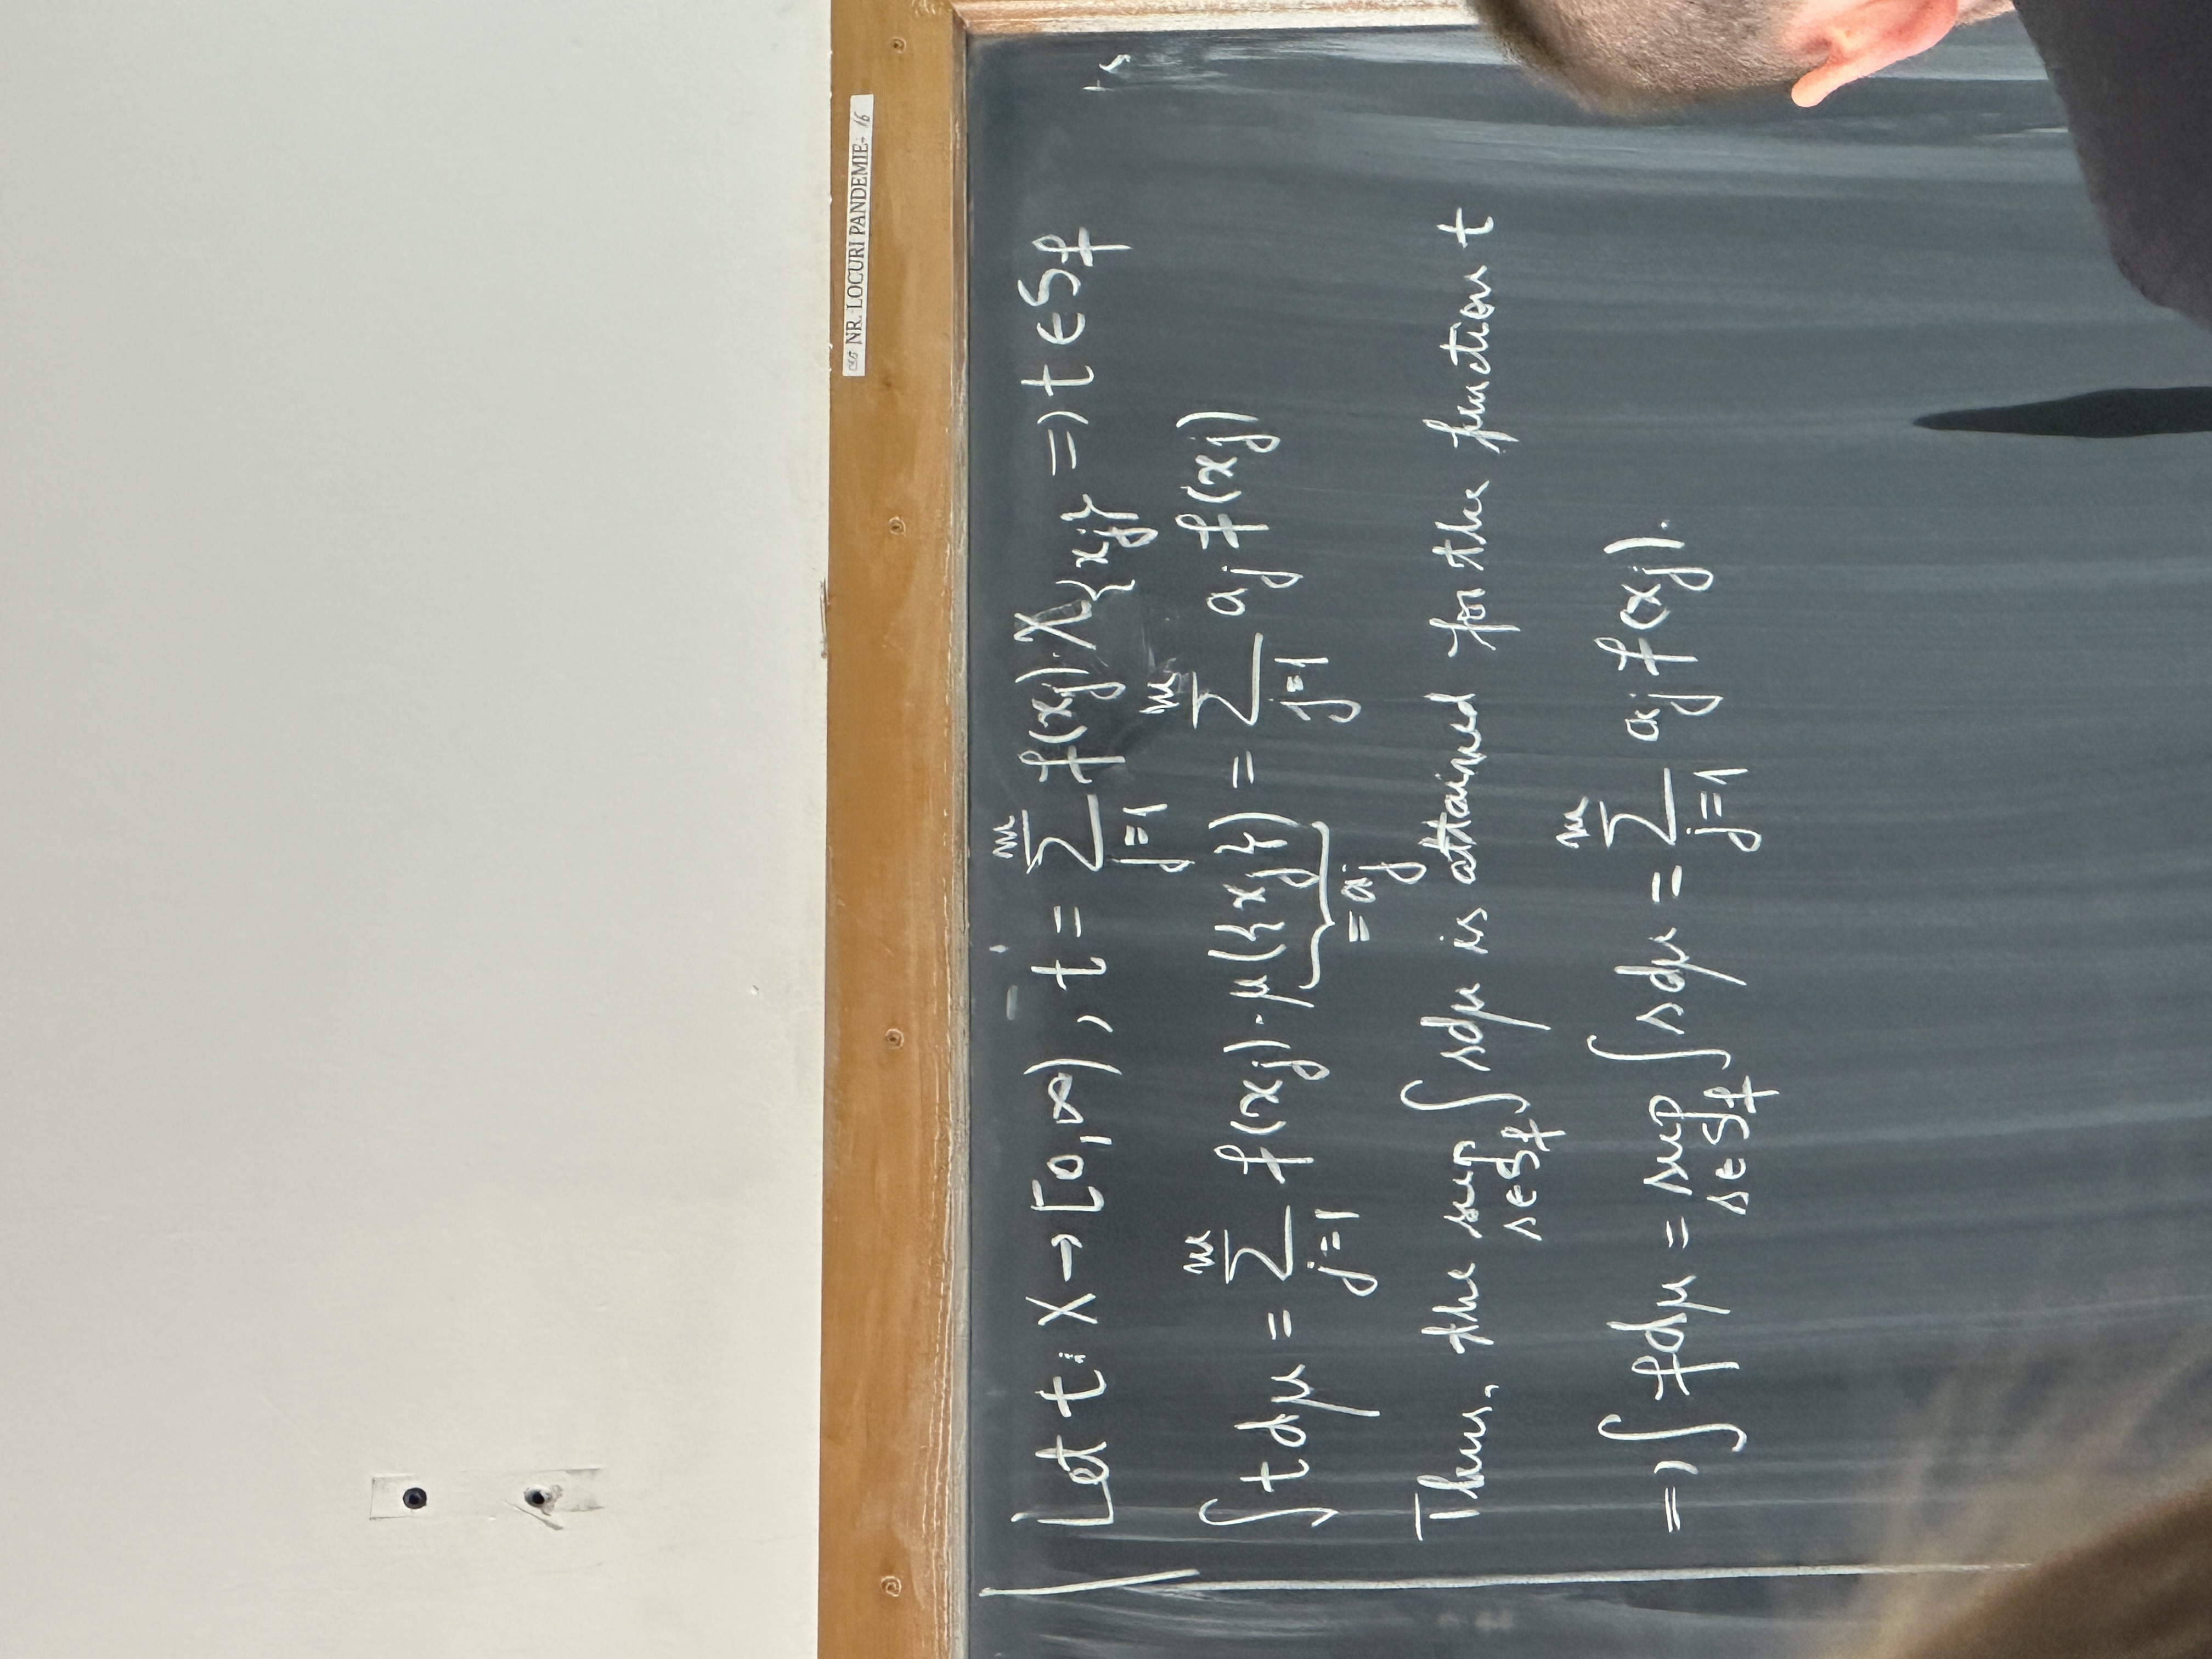 NR. LOCURI PANDEMIE- 16
Let t: X → [0,∞), t = ∑_{j=1}^{m} f(x_j)·χ_{{x_j}} => t ∈ S_f
∫ t dμ = ∑_{j=1}^{m} f(x_j)·μ({x_j}) = ∑_{j=1}^{m} a_j f(x_j)
= a_j
Thus, the sup_{s∈S_f} ∫ s dμ is attained for the function t
=> ∫ f dμ = sup_{s∈S_f} ∫ s dμ = ∑_{j=1}^{m} a_j f(x_j).